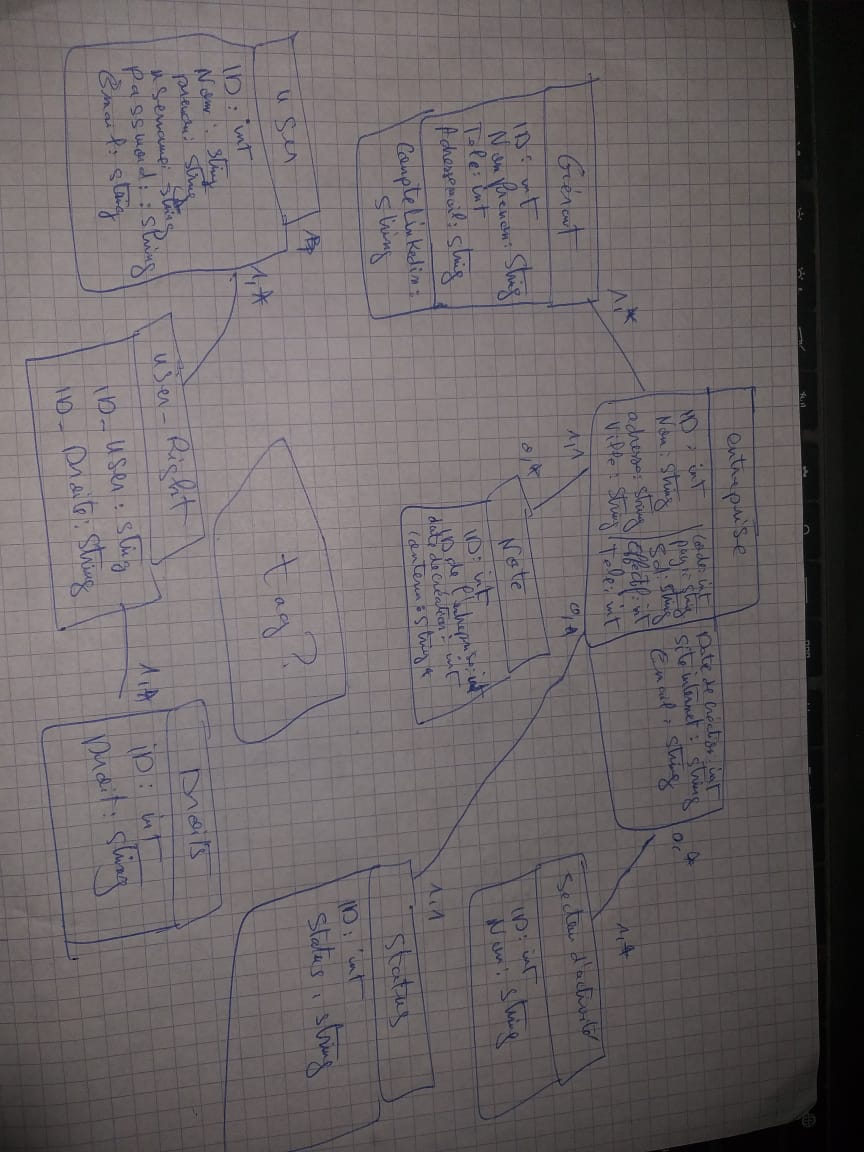 entreprise
ID : int
Nom : string
adresse : string
Ville : string
code : int
pays : string
Effectif : int
Tele : int
Date de création : int
Site internet : string
Email : string
0,*
1,*
Secteur d'activité
ID : int
Nom : string
1,*
Gérant
ID : int
Nom Prenom : String
Tele : int
Adresse mail : string
Compte Linkedin :
string
1,1
0,*
Note
ID : int
ID de l'entreprise : int
date de création : int
contenu : string
0,*
1,1
Status
ID : int
Status : string
tag ?
user
1,*
ID : int
Nom : string
prenom : String
username : string
password : : string
Email : string
user-Right
ID_user : string
ID_Droits : String
1,*
Droits
ID : int
Droit : string